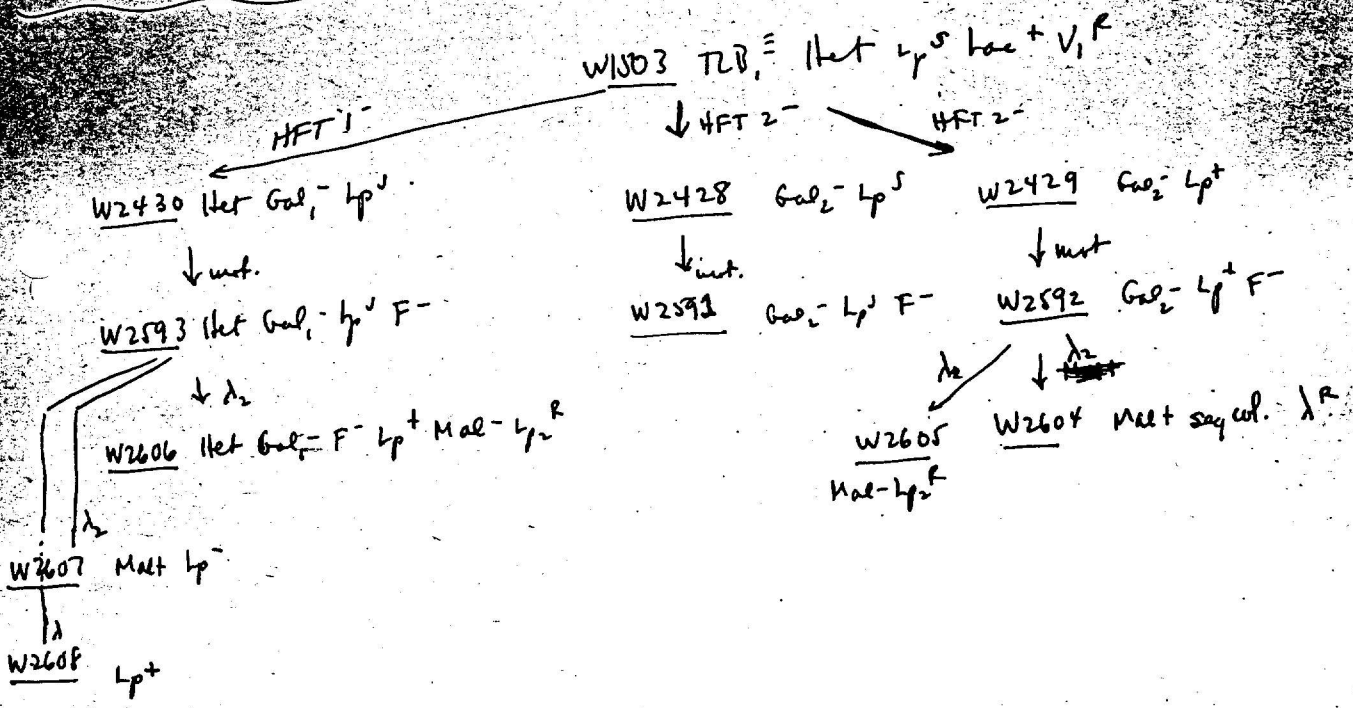 W1503 TLB₁⁻ Het Lpˢ Lac + V₁ᴿ
HFT 1⁻ ↓ HFT 2⁻ HFT 2⁻
W2430 Het Gal₁⁻ Lpˢ W2428 Gal₂⁻ Lpˢ W2429 Gal₂⁻ Lp⁺
↓ mot. ↓ mot. ↓ mot
W2593 Het Gal₁⁻ Lpˢ F⁻ W2591 Gal₂⁻ Lpˢ F⁻ W2592 Gal₂⁻ Lp⁺ F⁻
↓ λ₂ λ₂ ↓ λ₂
W2606 Het Gal₁⁻ F⁻ Lp⁺ Mal⁻ Lp₂ᴿ W2605 W2604 Mal+ seg col. λᴿ
Mal⁻ Lp₂ᴿ
λ₂
W2607 Mal+ Lp⁻
λ
W2608 Lp⁺